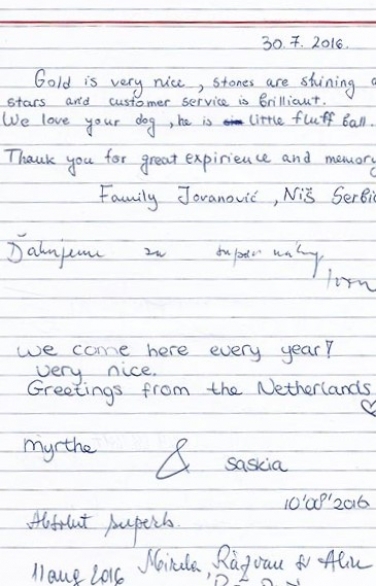 30.7.2016.
Gold is very nice, stones are shining a
stars and customer service is brilliant.
We love your dog, he is little fluff ball.
Thank you for great expirience and memory
Family Jovanović, Niš Serbia
Ďakujeme za super
we come here every year!
very nice.
Greetings from the Netherlands
myrthe & saskia
10'08'2016
Absolut superb.
11 aug 2016 Mirela Răzvan & Alin